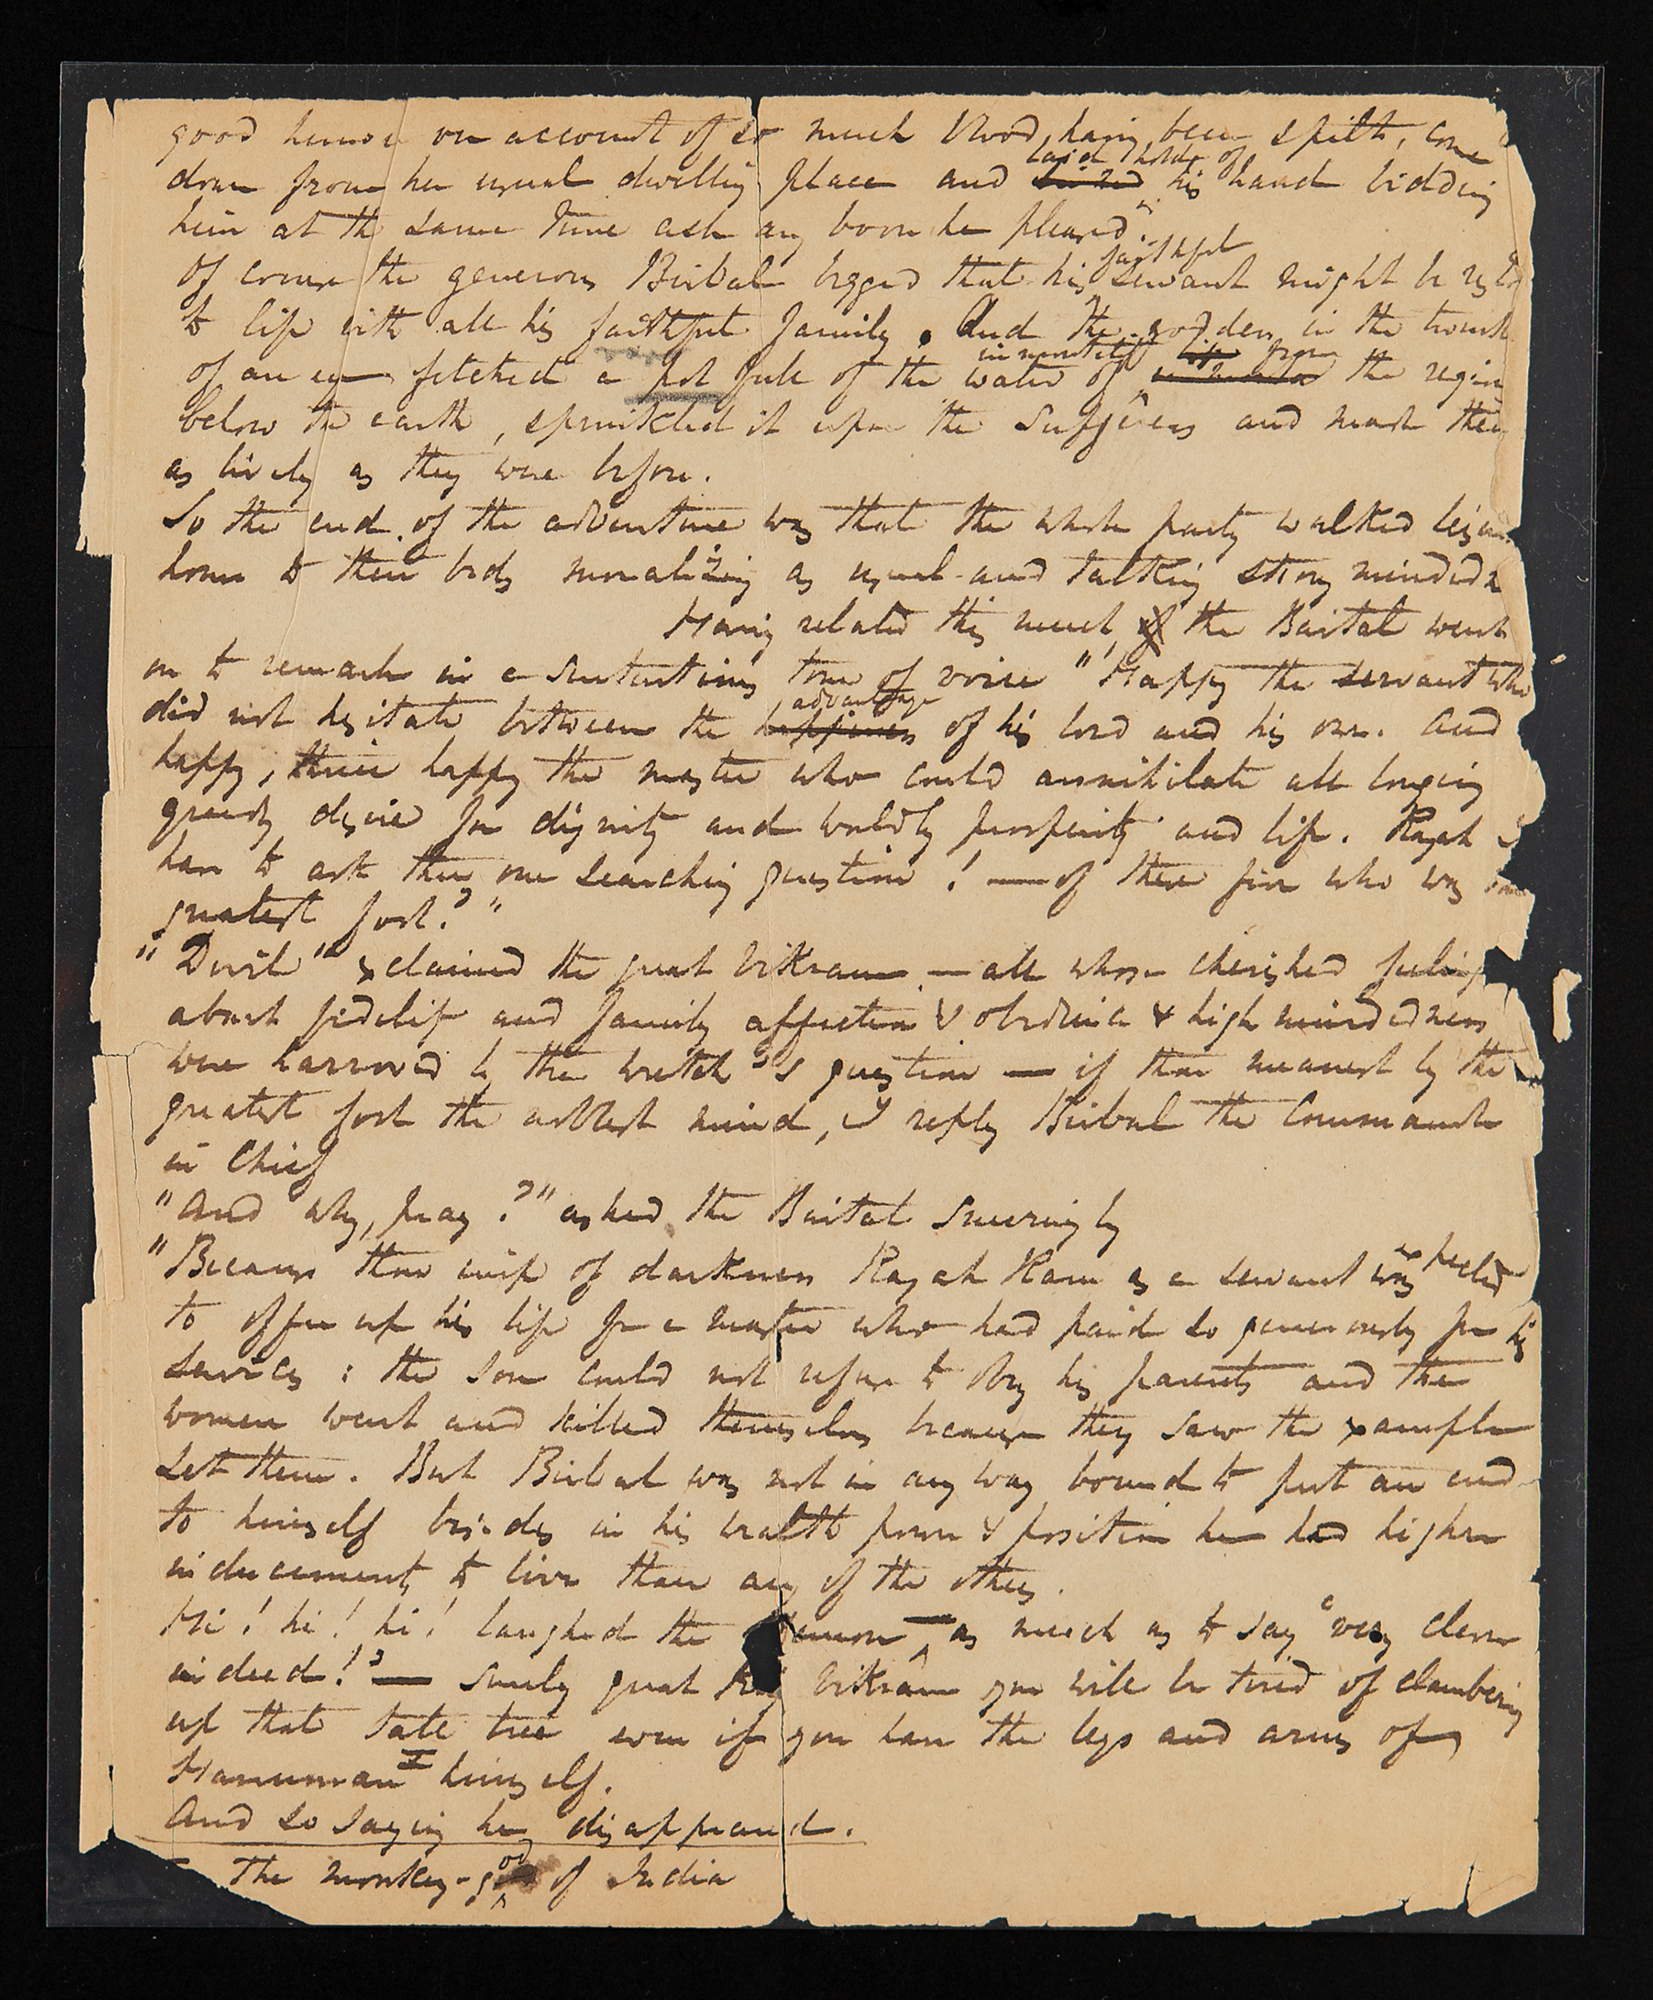 good humour on account of so much blood having been spilt, came
down from her usual dwelling place and laid hold of seized his hand bidding
him at the same time ask any boon he pleased".
Of course the generous Birbal begged that his faithful servant might be
to life with all his faithful family. And the goddess in the twinkle
of an eye fetched a pot full of the water of immortality life from the regions
below the earth, sprinkled it upon the sufferers and made them
as lively as they were before.
So the end of the adventure was that the whole party walked
home to their beds moralizing as usual and talking strong minded
Having related this much, the Baital went
on to remark in a sententious tone of voice "Happy the servant who
did not hesitate between the advantage happiness of his lord and his own. And
happy, thrice happy the master who could annihilate all longing
greedy desire for dignity and worldly prosperity and life. Rajah I
have to ask thee one searching question! — of these five who was
greatest fool?"
"Devil" exclaimed the great Vikram — all whose cherished feelings
about fidelity and family affection & obedience & high mindedness
were harrowed by the wretch's question — if thou meanest by the
greatest fool the noblest mind, I reply Birbal the Commander
in Chief
"And why, pray?" asked the Baital sneeringly
"Because thou imp of darkness Rajah Ram as a servant was expected
to offer up his life for a master who had paid so generously for his
services: the son could not refuse to obey his parents and the
women went and killed themselves because they saw the example
set them. But Birbal was not in any way bound to put an end
to himself besides in his wealth power & position he had higher
inducements to live than any of the others.
Hi! hi! hi! laughed the demon — as much as to say "very clever
indeed!" — surely great King Vikram you will be tired of clambering
up that tall tree even if you have the legs and arms of
Hanuman I himself.
And so saying he disappeared.
The monkey-god of India